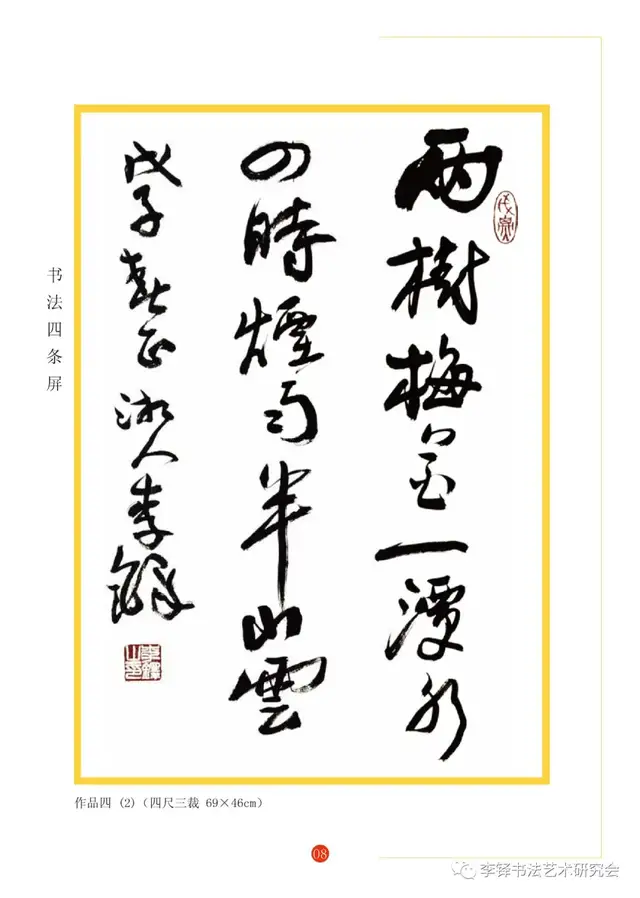 书法四条屏
兩樹梅花一潭水
四時煙雨半山雲
戊子春正 湘人李鐸
作品四 (2)（四尺三裁 69×46cm）
08
李铎书法艺术研究会